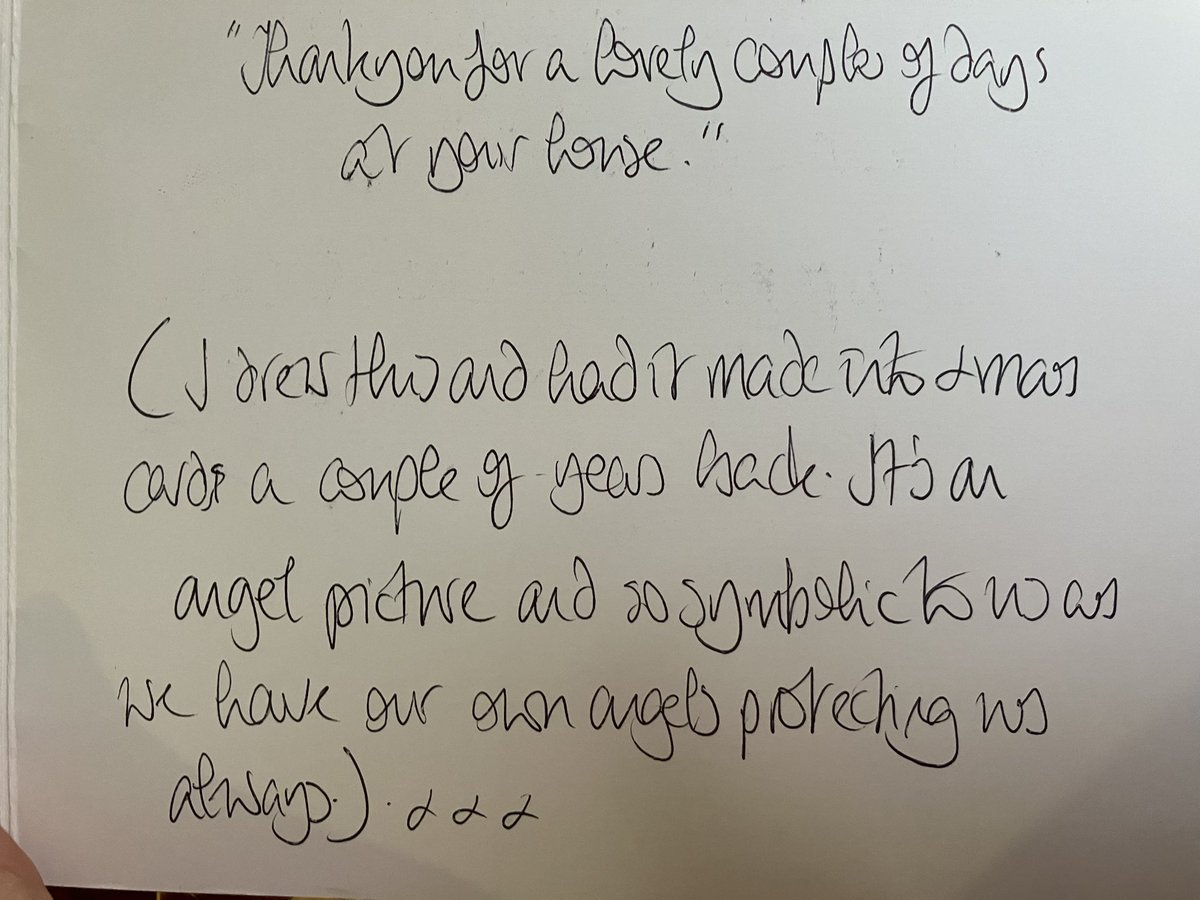 "Thankyou for a lovely couple of days
at your house."
(I drew this and had it made into xmas
cards a couple of years back. It's an
angel picture and so symbolic to us as
we have our own angels protecting us
always.). x x x